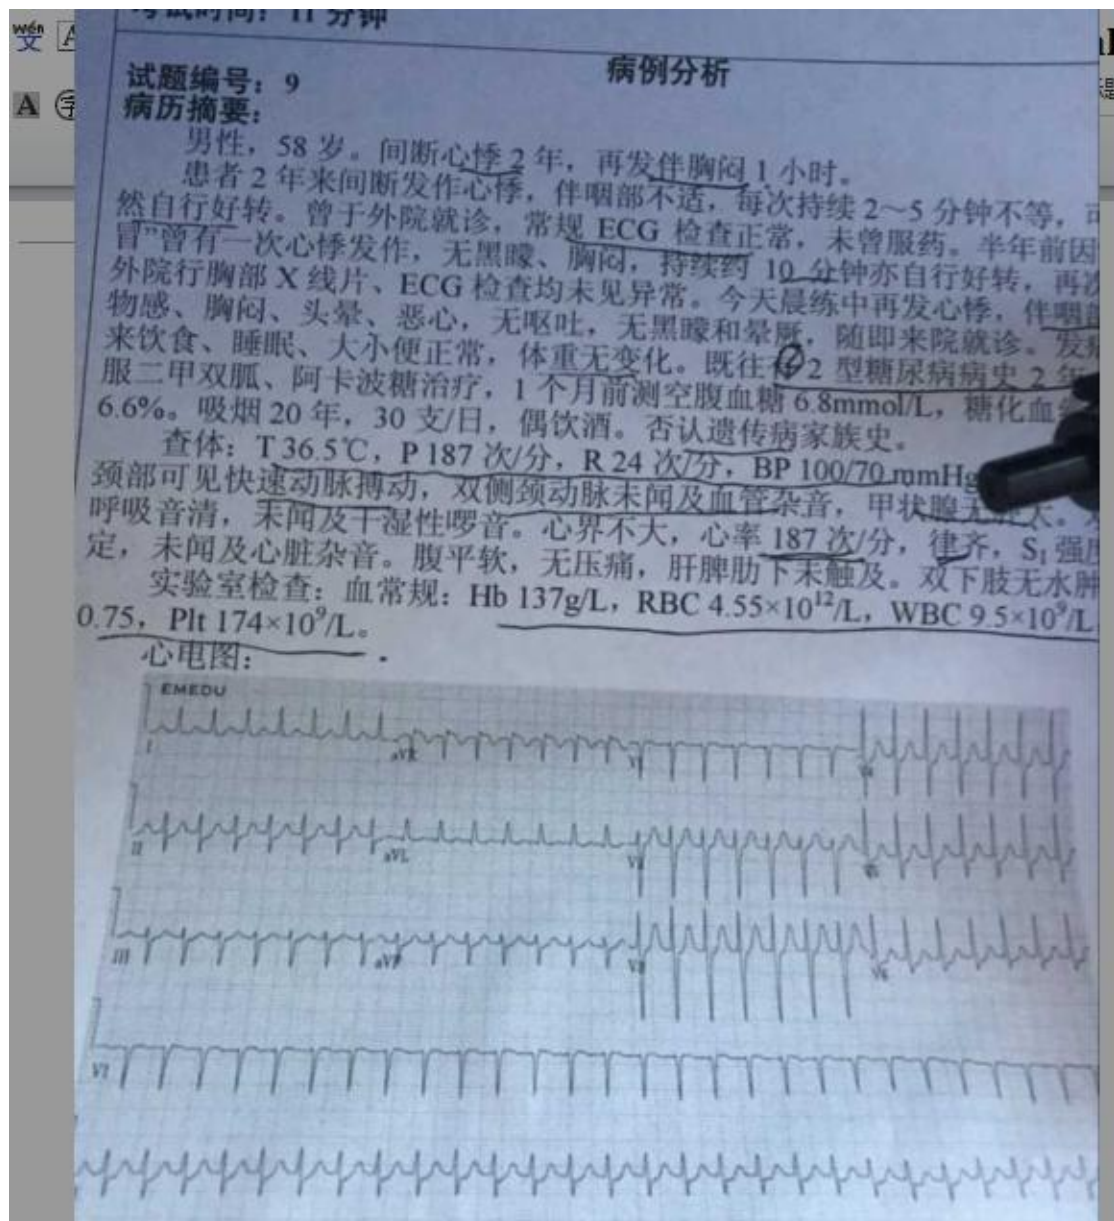 wén
文 A
A 字
考试时间：11 分钟
病例分析
试题编号：9
病历摘要：
男性，58 岁。间断心悸 2 年，再发伴胸闷 1 小时。
患者 2 年来间断发作心悸，伴咽部不适，每次持续 2～5 分钟不等，可
然自行好转。曾于外院就诊，常规 ECG 检查正常，未曾服药。半年前因
冒”曾有一次心悸发作，无黑矇、胸闷，持续约 10 分钟亦自行好转，再次
外院行胸部 X 线片、ECG 检查均未见异常。今天晨练中再发心悸，伴咽部
物感、胸闷、头晕、恶心，无呕吐，无黑矇和晕厥，随即来院就诊。发病
来饮食、睡眠、大小便正常，体重无变化。既往有 2 型糖尿病病史 2 年
服二甲双胍、阿卡波糖治疗，1 个月前测空腹血糖 6.8mmol/L，糖化血
6.6%。吸烟 20 年，30 支/日，偶饮酒。否认遗传病家族史。
查体：T 36.5℃，P 187 次/分，R 24 次/分，BP 100/70 mmHg
颈部可见快速动脉搏动，双侧颈动脉未闻及血管杂音，甲状腺无肿大。
呼吸音清，未闻及干湿性啰音。心界不大，心率 187 次/分，律齐，S₁ 强度
定，未闻及心脏杂音。腹平软，无压痛，肝脾肋下未触及。双下肢无水肿
实验室检查：血常规：Hb 137g/L，RBC 4.55×10¹²/L，WBC 9.5×10⁹/L
0.75，Plt 174×10⁹/L。
心电图：
EMEDU
I aVR V1 V4
II aVL V2 V5
III aVF V3 V6
V1